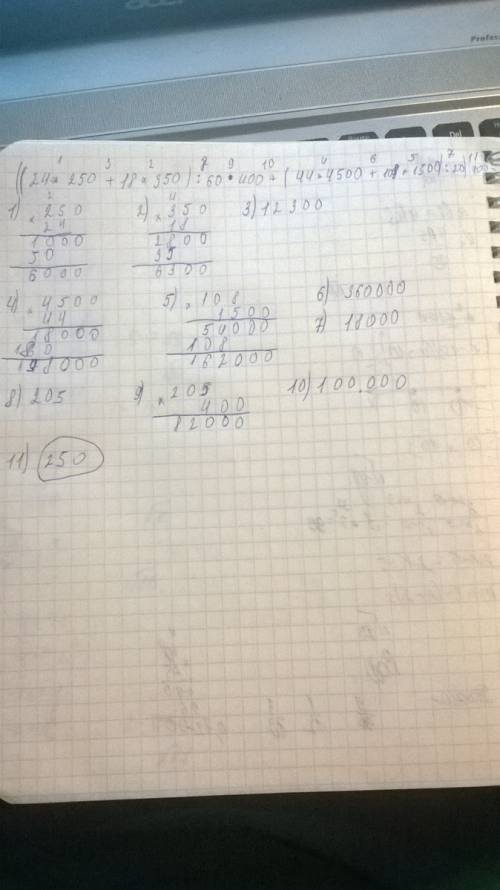 1 3 2 8 9 10 4 6 5 7 11
((24 × 250 + 18 × 350) : 60 • 400 + (44 × 4500 + 108 × 1500) : 20) : 400
1) × 250 2) × 350 3) 12300
24 18
1000 2800
50 35
6000 6300
4) × 4500 5) × 108 6) 360000
44 1500 7) 18000
18000 54000
180 108
198000 162000
8) 205 9) × 205 10) 100.000
400
82000
11) 250